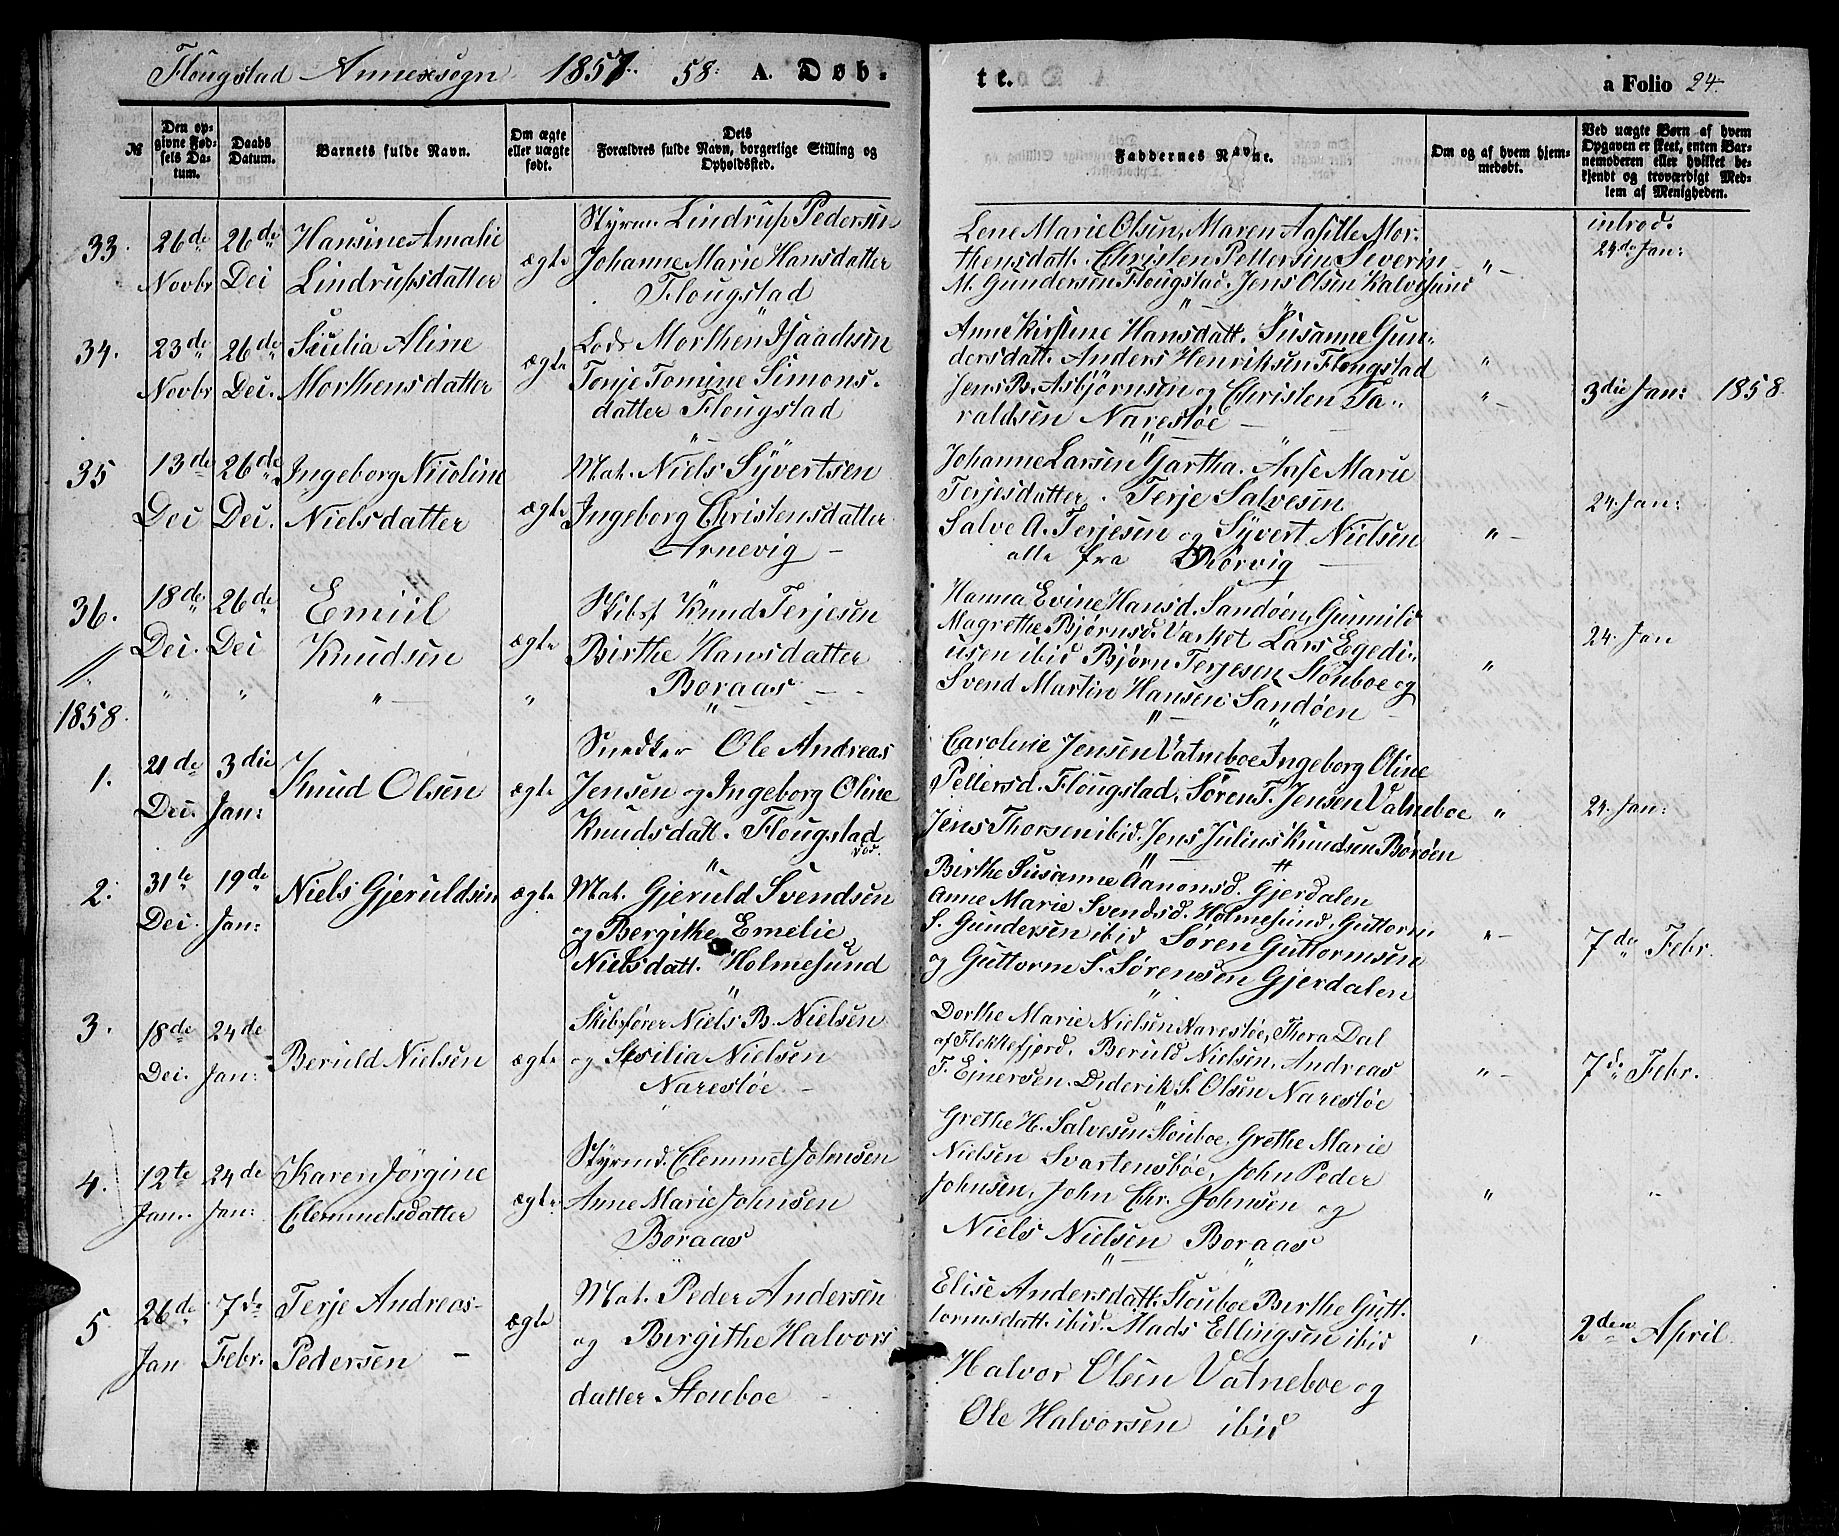 Flougstad Annexsogn 1857. 58. A. Døb. t e. a Folio 24.
№
Den op-
givne Fød-
sels Da-
tum.
Daabs
Datum.
Barnets fulde Navn.
Om ægte
eller uægte
født.
Dets
Forældres fulde Navn, borgerlige Stilling og
Opholdssted.
Faddernes Navne.
Om og af hvem hjem-
medøbt.
Ved uægte Børn af hvem
Opgaven er skeet, enten Bar-
nemoderen eller hvilket be-
kjendt og troværdigt Med-
lem af Menigheden.
33. 26de Novbr 26de Dec
Hansine Amalie
Lindrupsdatter
ægte
Styrm. Lindrup Pedersen
Johanne Marie Hansdatter
Flougstad
Lene Marie Olsen, Maren Aasille Mor-
thensdatt. Christen Pettersen Severin
M. Gundersen Flougstad. Jens Olsen Kalvesund
introd.
24de Jan:
34. 23de Novbr 26de Dec.
Secilia Aline
Morthensdatter
ægte
Lods Morthen Isaachsen
Tonje Tomine Simons-
datter Flougstad
Anne Kirstine Hansdatt. Susanne Gun-
dersdatt. Anders Henriksen Flougstad
Jens B. Asbjørnsen og Christen Ta-
raldsen Narestøe
3die Jan: 1858.
35 13de Dec 26de Dec.
Ingeborg Nicoline
Nielsdatter
ægte
Mat. Niels Syvertsen
Ingeborg Christensdatter
Arnevig
Johanne Larsen Gartha. Aase Marie
Terjesdatter. Terje Salvesen
Salve A. Terjesen og Syvert Nielsen
alle fra Rørvig
24. Jan:
36. 18de Dec. 26de Dec
Emiil
Knudsen
ægte
Skibsf Knud Terjesen
Birthe Hansdatter
Boraas
Hanna Evine Hansd. Sandøen, Gunnild
Magrethe Bjørnsd. Lars Egedi-
usen ibid Bjørn Terjesen Stouboe og
Svend Martin Hansen Sandøen
24. Jan
1858.
1. 21de Dec. 3die Jan:
Knud Olsen
ægte
Snedker Ole Andreas
Jensen og Ingeborg Oline
Knudsdatt. Flougstad
Caroline Jensen Vatneboe Ingeborg Oline
Pettersd. Flougstad, Søren T. Jensen Vatneboe
Jens Thorsen ibid. Jens Julius Knudsen Borøen
24. Jan:
2. 31te Dec. 19de Jan:
Niels Gjeruldsen
ægte
Mat. Gjeruld Svendsen
og Bergithe Emelie
Nielsdatt. Holmesund
Birthe Susanne Aanonsd. Gjerdalen
Anne Marie Svendsd. Holmesund, Guttorm
S. Gundersen ibid Søren Guttormsen
og Guttorm S. Sørensen Gjerdalen
7de Febr.
3. 18de Dec. 24de Jan:
Beruld Nielsen
ægte
Skibsfører Niels B. Nielsen
og Sesilia Nielsen
Narestøe
Dorthe Marie Nielsen Narestøe, Thora Dal
af Flekkefjord. Beruld Nielsen, Andreas
T. Ejnersen. Diderik S. Olsen Narestøe
7de Febr.
4. 12te Jan. 24de Jan:
Karen Jørgine
Clemmetsdatter
ægte
Styrmd. Clemmet Johnsen
Anne Marie Johnsen
Boraas
Grethe H. Salvesen Stouboe, Grethe Marie
Nielsen Svartensbøe, John Peder
Johnsen, John Chr. Johnsen og
Niels Nielsen Boraas
5. 26de Jan 7de Febr.
Terje Andreas
Pedersen
ægte
Mat. Peder Andersen
og Bergithe Halvors
datter Stouboe
Elise Andersdatt. Stouboe Birthe Gutt-
tormsdatt. ibid. Mads Ellingsen ibid
Halvor Olsen Vatneboe og
Ole Halvorsen ibid
2den April